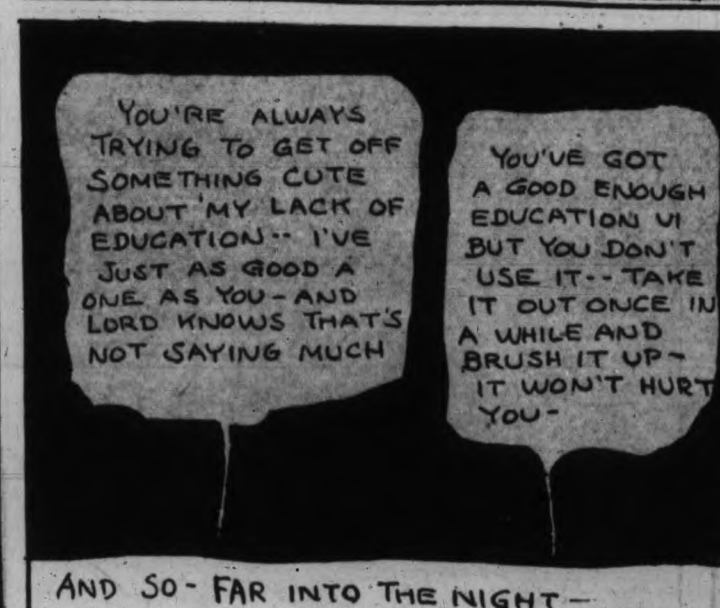 YOU'RE ALWAYS
TRYING TO GET OFF
SOMETHING CUTE
ABOUT MY LACK OF
EDUCATION-- I'VE
JUST AS GOOD A
ONE AS YOU-AND
LORD KNOWS THAT'S
NOT SAYING MUCH
YOU'VE GOT
A GOOD ENOUGH
EDUCATION VI
BUT YOU DON'T
USE IT-- TAKE
IT OUT ONCE IN
A WHILE AND
BRUSH IT UP-
IT WON'T HURT
YOU-
AND SO- FAR INTO THE NIGHT-